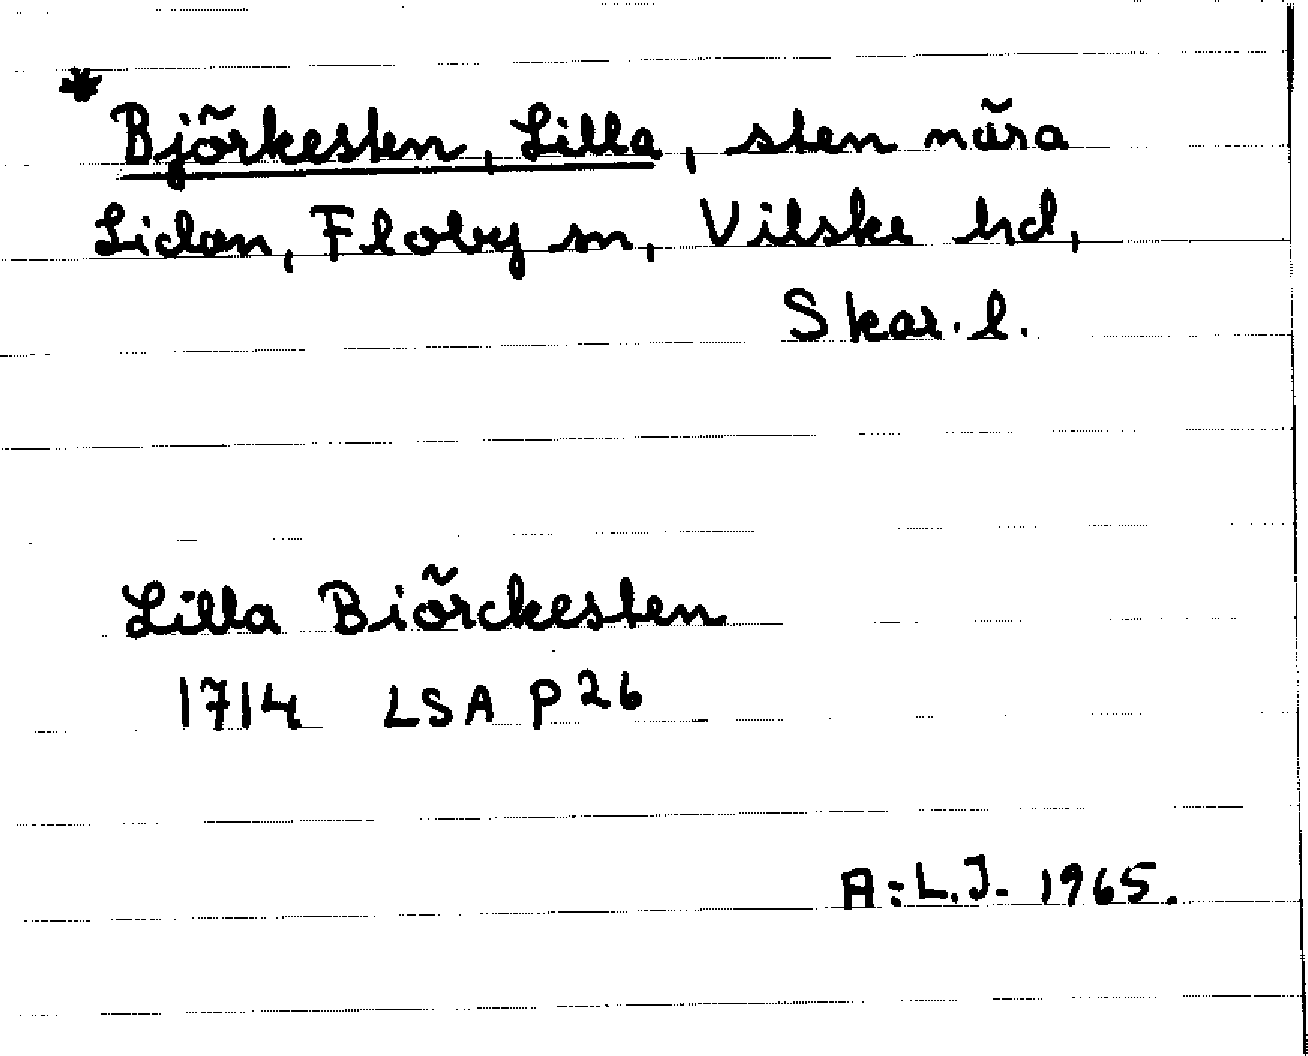 * Björkesten, Lilla, sten nära
Lidan, Floby sn, Vilske hd,
Skar. l.
Lilla Biörckesten
1714 LSA P 26
A:L.J. 1965.